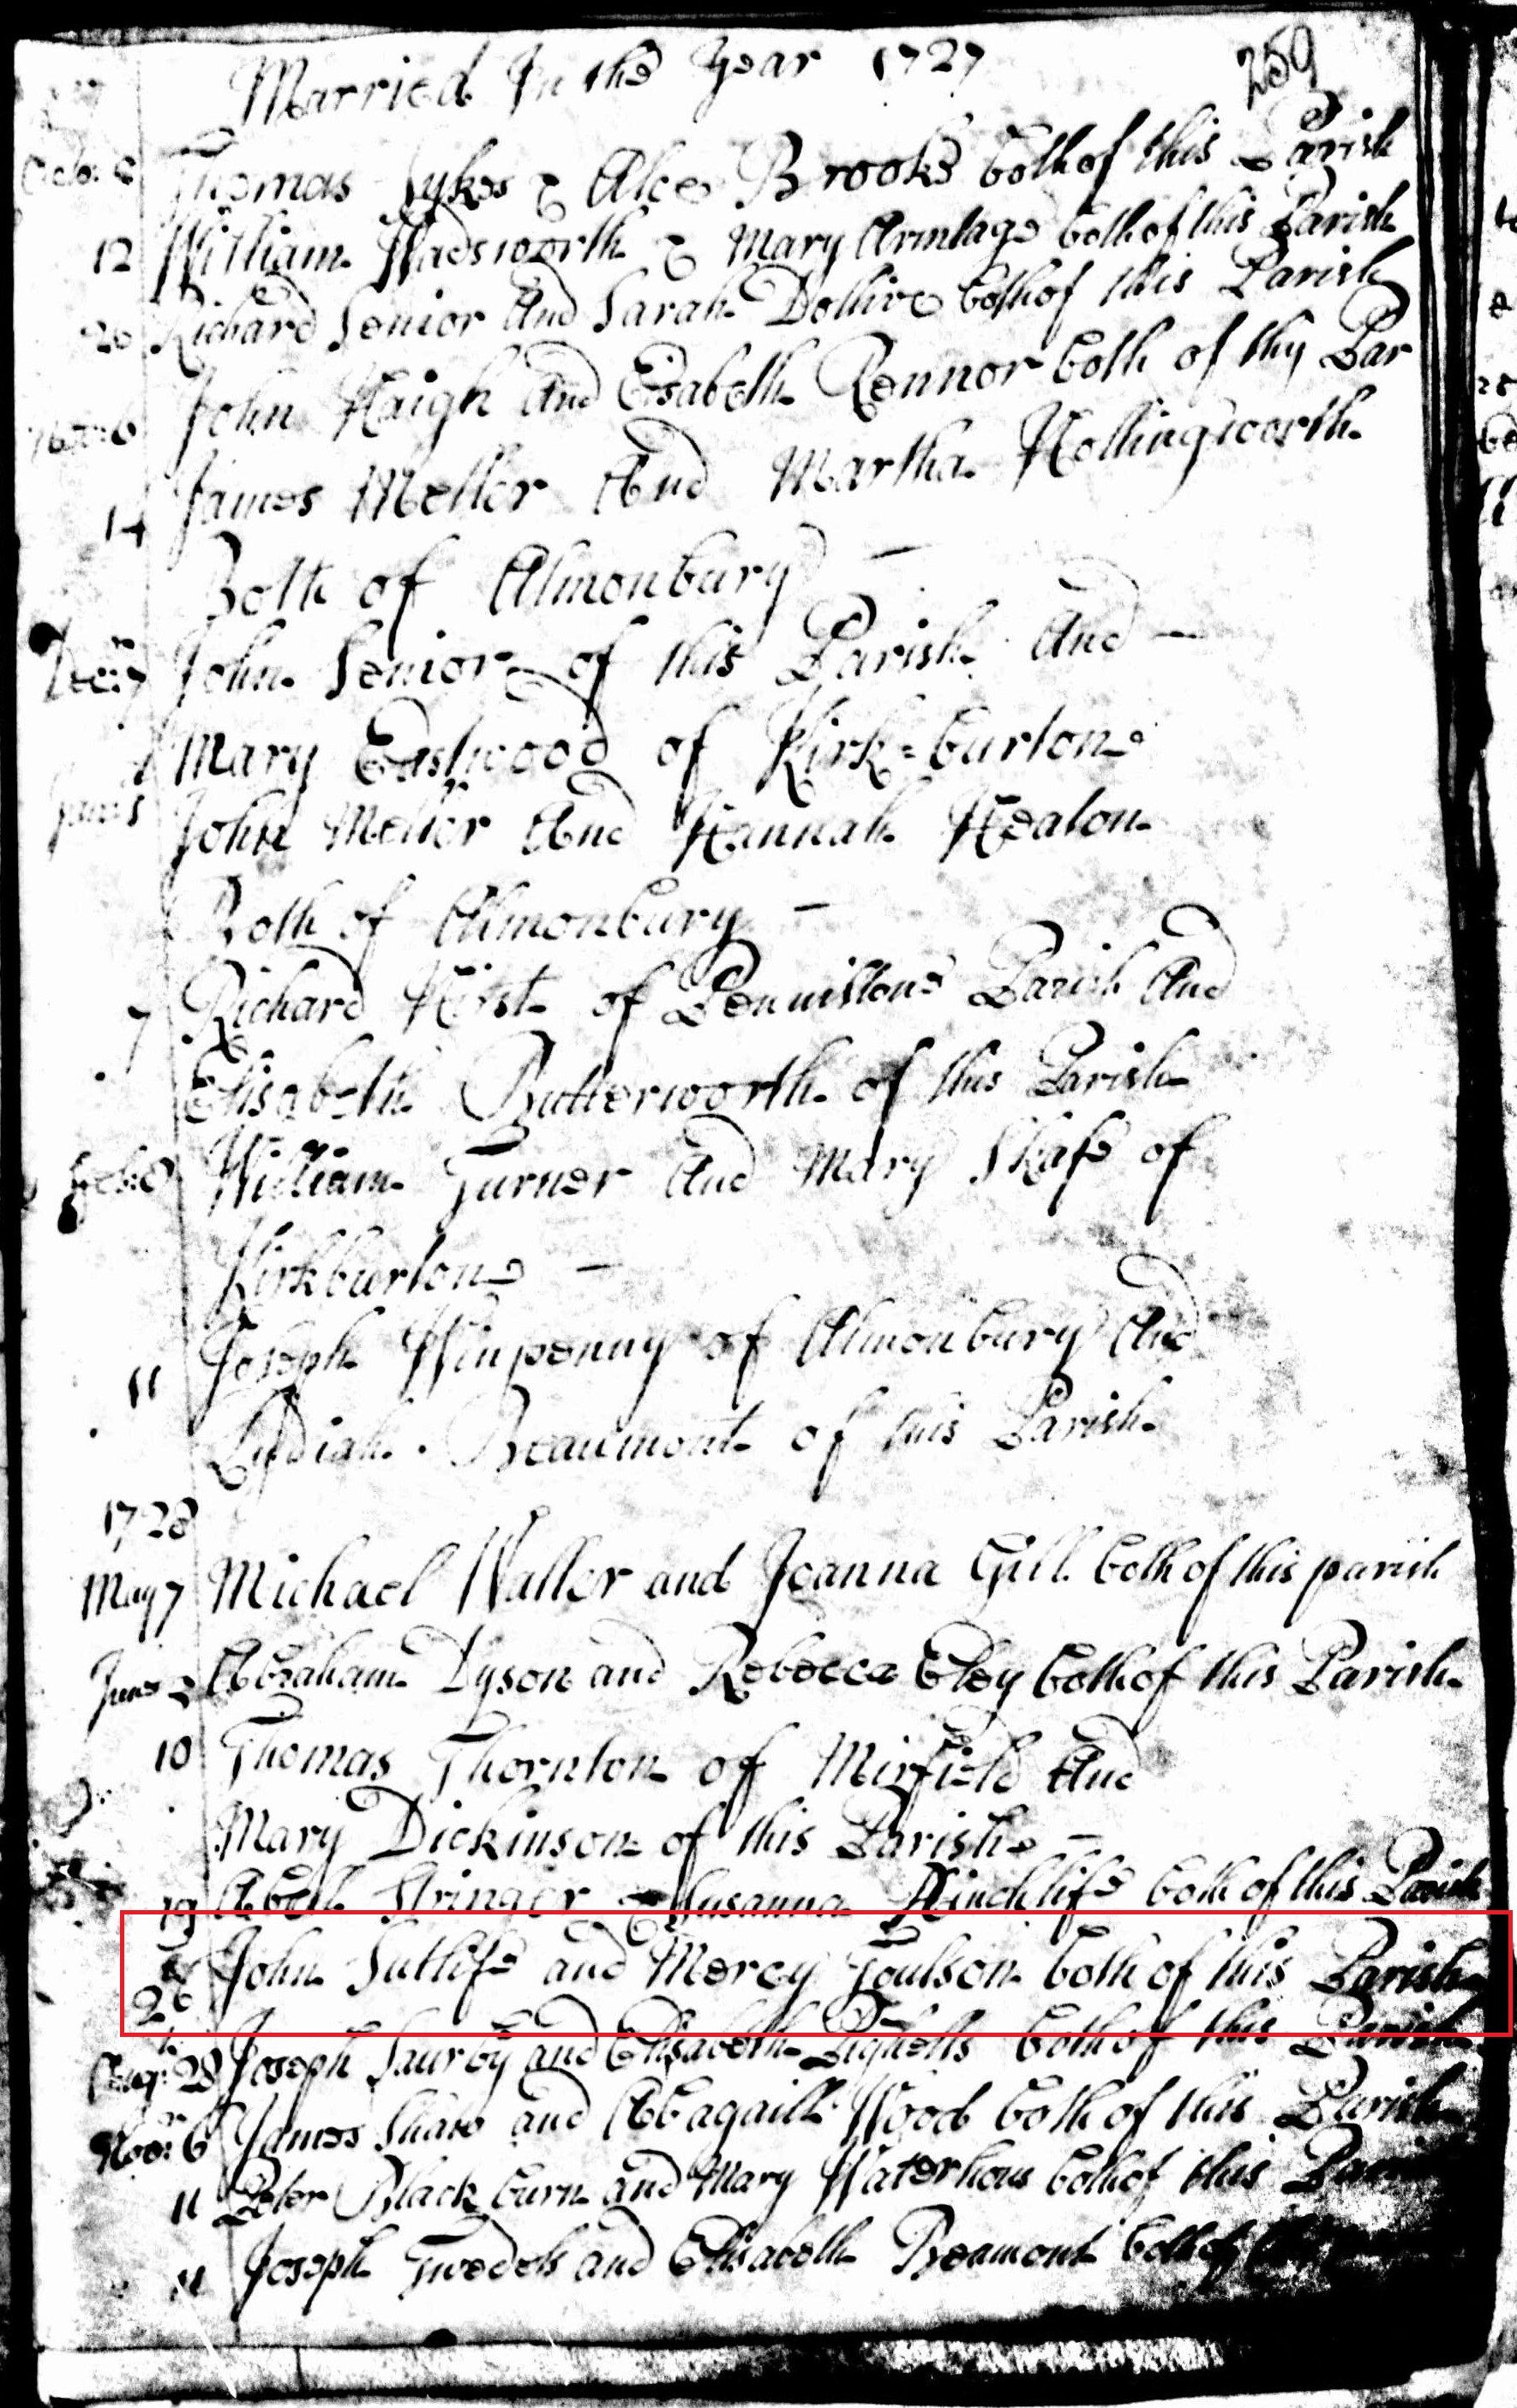 Married In the Year 1727
259
Thomas Sykes & Alce Brooke both of this Parish
12 William Wadsworth & Mary Armtage both of this Parish
26 Richard Senior And Sarah Dollive both of this Parish
John Haigh And Esabeth Rennor both of thy Par
14 James Meller And Martha Hollingworth
Both of Almonbury
Decr: 7 John Senior of this Parish And
Mary Eastwood of Kirk=burtone
John Mellor And Hannah Heaton
Both of Almonbury
7 Richard Hirst of Pennistone Parish And
Elisabeth Butterworth of this Parish
William Turner And Mary Skafe of
Kirkburtone
11 Joseph Winpenny of Almonbury And
Lydiah Beaumont of this Parish
1728
May 7 Michael Waller and Joanna Gill both of this parish
June 2 Abraham Dyson and Rebecca Eley both of this Parish
10 Thomas Thornton of Mirfield And
Mary Dickinson of this Parish
19 Abell Stringer & Susanna Hinchlife both of this Parish
26 John Sutlife and Mercy Toulson both of this Parish
Aug: 28 Joseph Saurby and Elisabeth both of this Parish
Novr: 6 James Shaw and Abbagaill Wood both of this Parish
11 Peter Blackburn and Mary Waterhous both of this
11 Joseph and Elisabeth Beamont both of